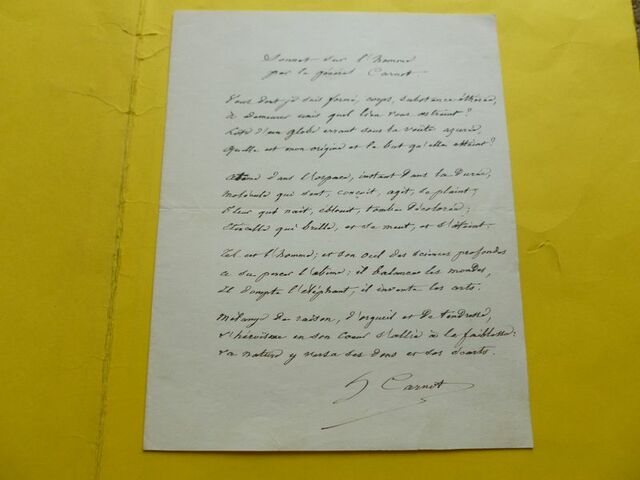 Sonnet sur l'homme
par le général Carnot
Vous dont je suis formé, corps, substance éthérée,
à demeurer unis quel lien vous astreint?
hôte d'un globe errant sous la voûte azurée,
Quelle est mon origine et le but qu'elle atteint?
Atome dans l'espace, instant dans la durée;
molécule qui sent, conçoit, agit, se plaint;
fleur qui naît, éblouit, tombe décolorée;
étincelle qui brille, et se meut, et s'éteint.
Tel est l'homme; et son oeil des sciences profondes
a su percer l'abîme; il balance les mondes,
Il dompte l'éléphant; il invente les arts.
mélange de raison, d'orgueil et de tendresse,
l'héroïsme en son coeur s'allie à la faiblesse:
la nature y versa ses dons et ses écarts.
Carnot